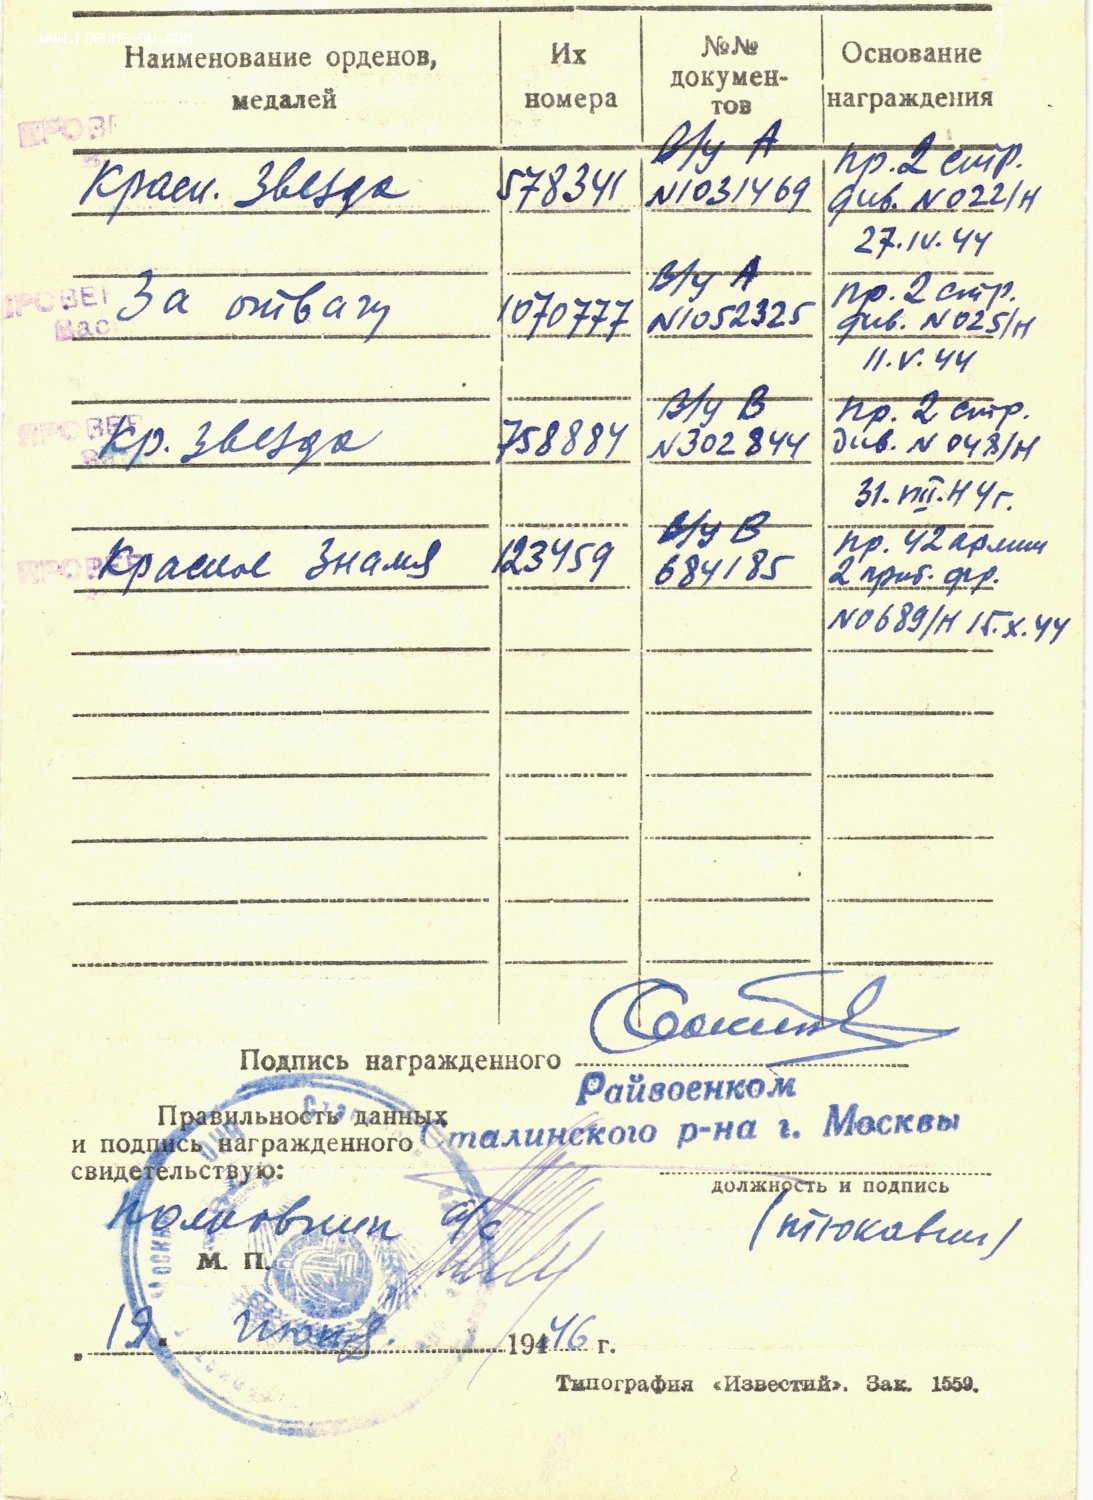 WWW.FORUMS-SU.COM
Наименование орденов, медалей
Их номера
№№ документов
Основание награждения
ПРОВЕ
Красн. Звезда 578341 В/у А N1031469 пр. 2 стр. див. N022/н 27.IV.44
ПРОВЕ
Вас
За отвагу 1070777 В/у А N1052325 пр. 2 стр. див. N025/н 11.V.44
ПРОВЕР
Кр. Звезда 758884 В/у В N302844 пр. 2 стр. див. N048/н 31.VIII.44г.
ПРОВЕР
Красное Знамя 123459 В/у В 684185 пр. 42 армии 2 приб. фр. N0689/н 15.X.44
Подпись награжденного
Райвоенком
Правильность данных
и подпись награжденного
Сталинского р-на г. Москвы
свидетельствую:
должность и подпись
Полковник а/с
(Тюкавин)
М. П.
19 июня 1946 г.
Типография «Известий». Зак. 1559.